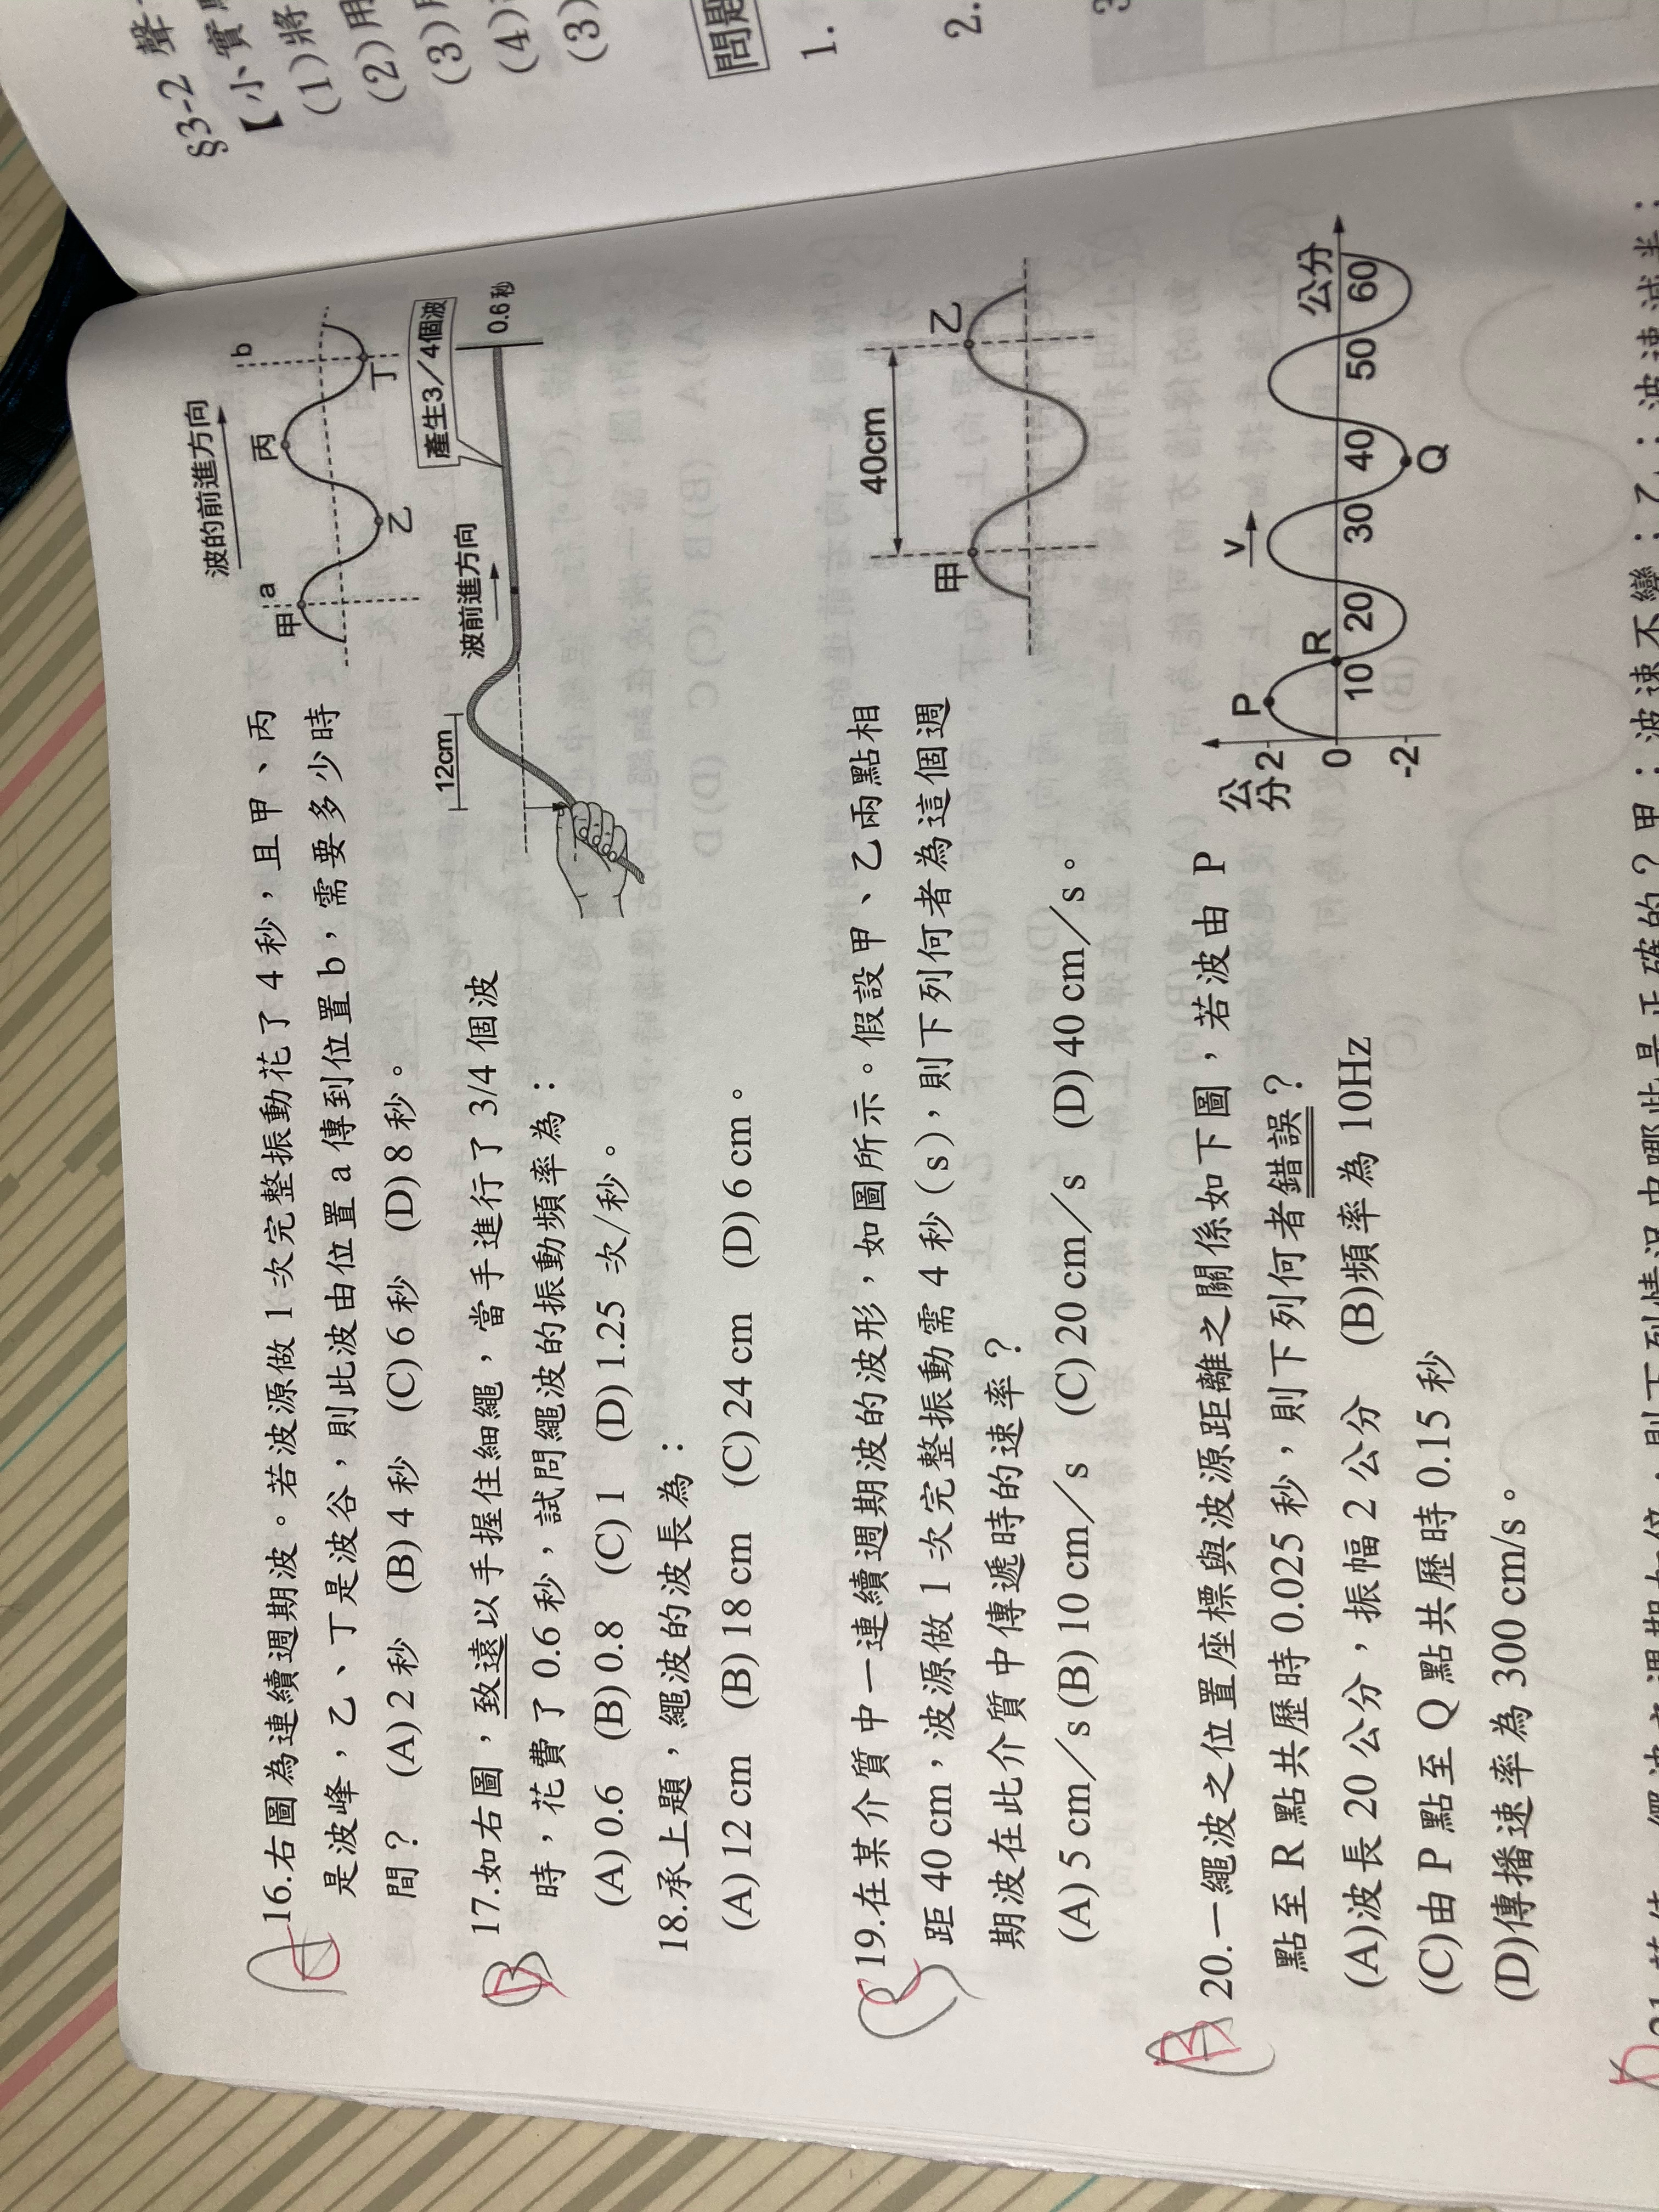 16.右圖為連續週期波。若波源做 1 次完整振動花了 4 秒，且甲、丙
是波峰，乙、丁是波谷，則此波由位置 a 傳到位置 b，需要多少時
間？ (A) 2 秒 (B) 4 秒 (C) 6 秒 (D) 8 秒。
波的前進方向
甲 a 乙 丙 丁 b
17.如右圖，致遠以手握住細繩，當手進行了 3/4 個波
時，花費了 0.6 秒，試問繩波的振動頻率為：
(A) 0.6 (B) 0.8 (C) 1 (D) 1.25 次/秒。
12cm
波前進方向
產生3／4個波
0.6秒
18.承上題，繩波的波長為：
(A) 12 cm (B) 18 cm (C) 24 cm (D) 6 cm。
19.在某介質中一連續週期波的波形，如圖所示。假設甲、乙兩點相
距 40 cm，波源做 1 次完整振動需 4 秒（s），則下列何者為這個週
期波在此介質中傳遞時的速率？
(A) 5 cm／s (B) 10 cm／s (C) 20 cm／s (D) 40 cm／s。
甲 40cm 乙
20.一繩波之位置座標與波源距離之關係如下圖，若波由 P
點至 R 點共歷時 0.025 秒，則下列何者錯誤？
(A)波長 20 公分，振幅 2 公分 (B)頻率為 10Hz
(C)由 P 點至 Q 點共歷時 0.15 秒
(D)傳播速率為 300 cm/s。
公分
2
0
-2
P R V Q
10 20 30 40 50 60
公分
§3-2 聲
【小實
(1)將
(2)用
(3)
(4)
(3)
問題
1.
2.
A
B
B